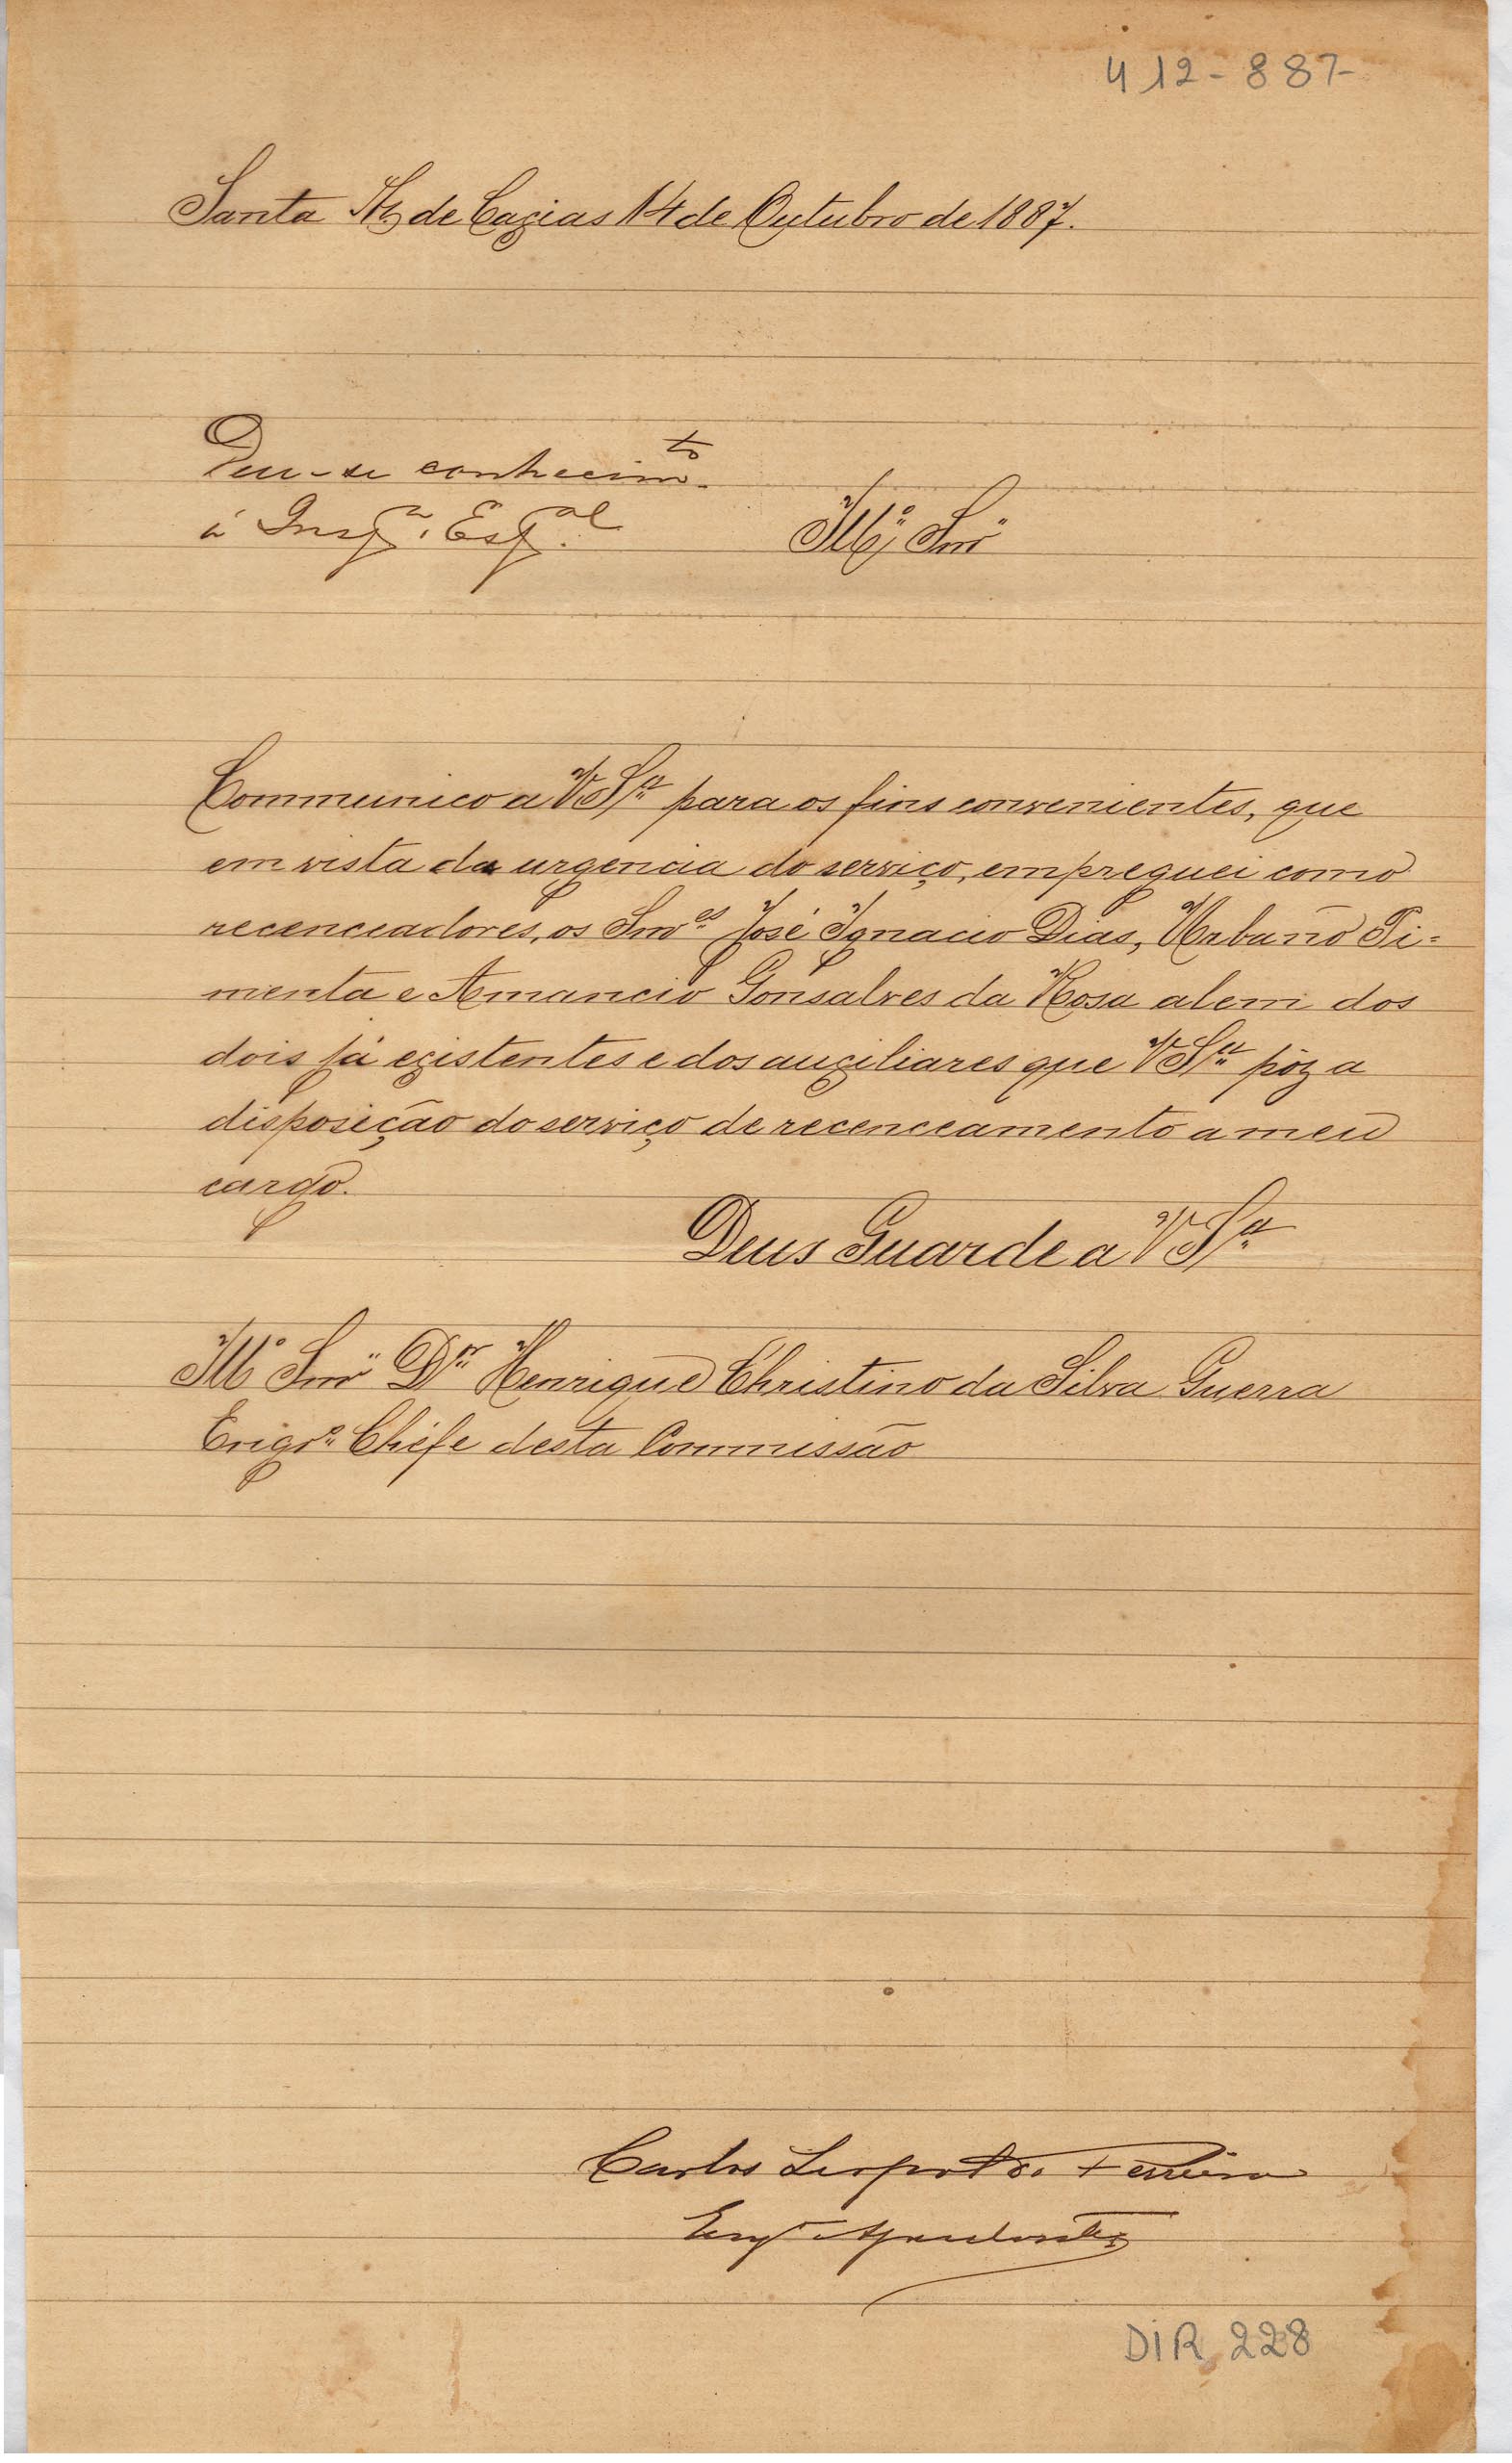 412-887-
Santa Th. de Caxias 14 de Outubro de 1887.
Deu-se conhecimto.
á Insp.a Esp.al
Illo Snr
Communico a V Sa para os fins convenientes, que
em vista da urgencia do serviço, empreguei como
recenceadores, os Snres José Ignacio Dias, Urbano Pi=
menta e Amancio Gonsalves da Rosa alem dos
dois já existentes e dos auxiliares que V Sa pôz a
disposição do serviço de recenceamento a meu
cargo.
Deus Guarde a V Sa
Illo Snr Dor Henrique Christino da Silva Guerra
Engro Chefe desta Commissão
Carlos Leopoldo Ferreira
Engo Ajudante
DIR 228